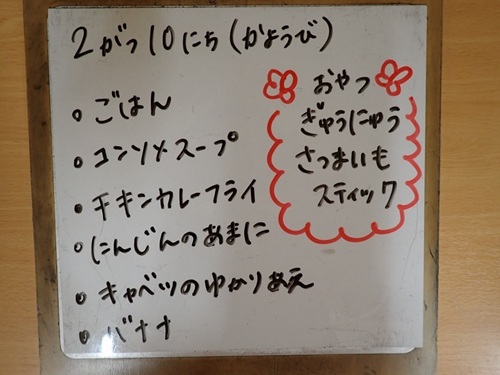 2がつ10にち(かようび)
・ごはん
・コンソメスープ
・チキンカレーフライ
・にんじんのあまに
・キャベツのゆかりあえ
・バナナ
おやつ
ぎゅうにゅう
さつまいも
スティック